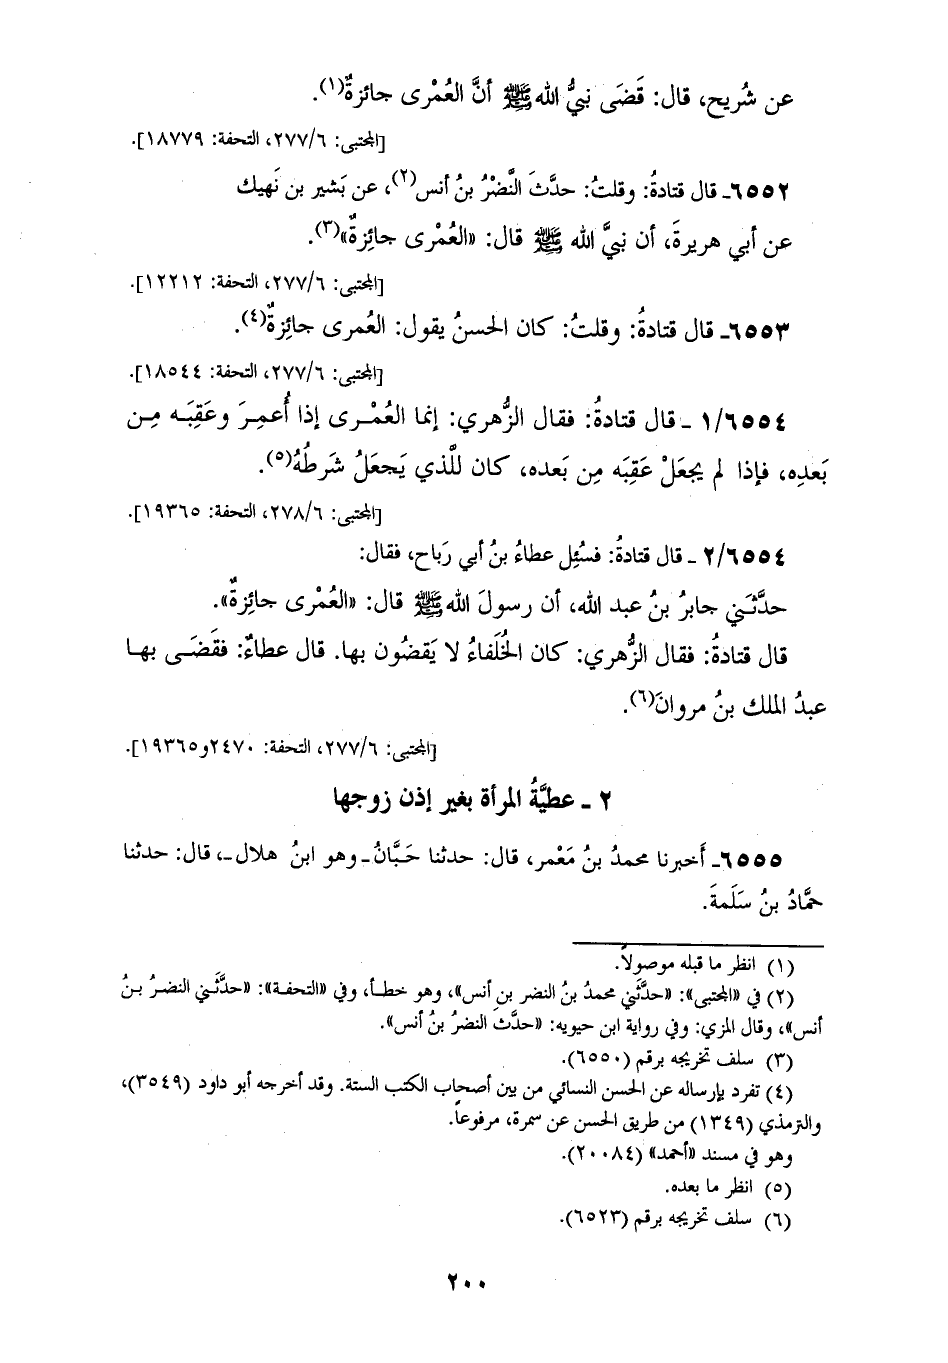 عن شُريح، قال: قَضَى نبيُّ الله ﷺ أنَّ العُمْرى جائزةٌ(١).
[المجتبى: ٢٧٧/٦، التحفة: ١٨٧٧٩].
٦٥٥٢ـ قال قتادةُ: وقلتُ: حدَّثَ النَّضْرُ بنُ أنس(٢)، عن بَشير بن نَهيك
عن أبي هريرةَ، أن نبيَّ الله ﷺ قال: «العُمْرى جائِزةٌ»(٣).
[المجتبى: ٢٧٧/٦، التحفة: ١٢٢١٢].
٦٥٥٣ـ قال قتادةُ: وقلتُ: كان الحسنُ يقول: العُمرى جائِزةٌ(٤).
[المجتبى: ٢٧٧/٦، التحفة: ١٨٥٤٤].
١/٦٥٥٤ ـ قال قتادةُ: فقال الزُّهري: إنما العُمْرى إذا أُعمِرَ وعَقِبَه مِن
بَعدِه، فإذا لم يجعَلْ عَقِبَه مِن بَعده، كان للَّذي يَجعَلُ شَرطُهُ(٥).
[المجتبى: ٢٧٨/٦، التحفة: ١٩٣٦٥].
٢/٦٥٥٤ ـ قال قتادةُ: فسُئِل عطاءُ بنُ أبي رَباح، فقال:
حدَّثَني جابرُ بنُ عبد الله، أن رسولَ الله ﷺ قال: «العُمْرى جائِزةٌ».
قال قتادةُ: فقال الزُّهري: كان الخُلَفاءُ لا يَقضُون بها. قال عطاءٌ: فقَضَى بها
عبدُ الملك بنُ مروانَ(٦).
[المجتبى: ٢٧٧/٦، التحفة: ٢٤٧٠ و١٩٣٦٥].
٢ ـ عطيَّةُ المرأة بغير إذن زوجها
٦٥٥٥ـ أَخبرنا محمدُ بنُ مَعْمر، قال: حدثنا حَبَّانُ ـ وهو ابنُ هلال ـ، قال: حدثنا
حمَّادُ بنُ سَلَمةَ.
(١) انظر ما قبله موصولاً.
(٢) في «المجتبى»: «حدَّثَني محمدُ بنُ النضر بنِ أنس»، وهو خطأ، وفي «التحفة»: «حدَّثَني النضرُ بنُ
أنس»، وقال المزي: وفي رواية ابن حيويه: «حدَّثَ النضرُ بنُ أنس».
(٣) سلف تخريجه برقم (٦٥٥٠).
(٤) تفرد بإرساله عن الحسن النسائي من بين أصحاب الكتب الستة. وقد أخرجه أبو داود (٣٥٤٩)،
والترمذي (١٣٤٩) من طريق الحسن عن سمرة، مرفوعاً.
وهو في مسند «أحمد» (٢٠٠٨٤).
(٥) انظر ما بعده.
(٦) سلف تخريجه برقم (٦٥٢٣).
٢٠٠